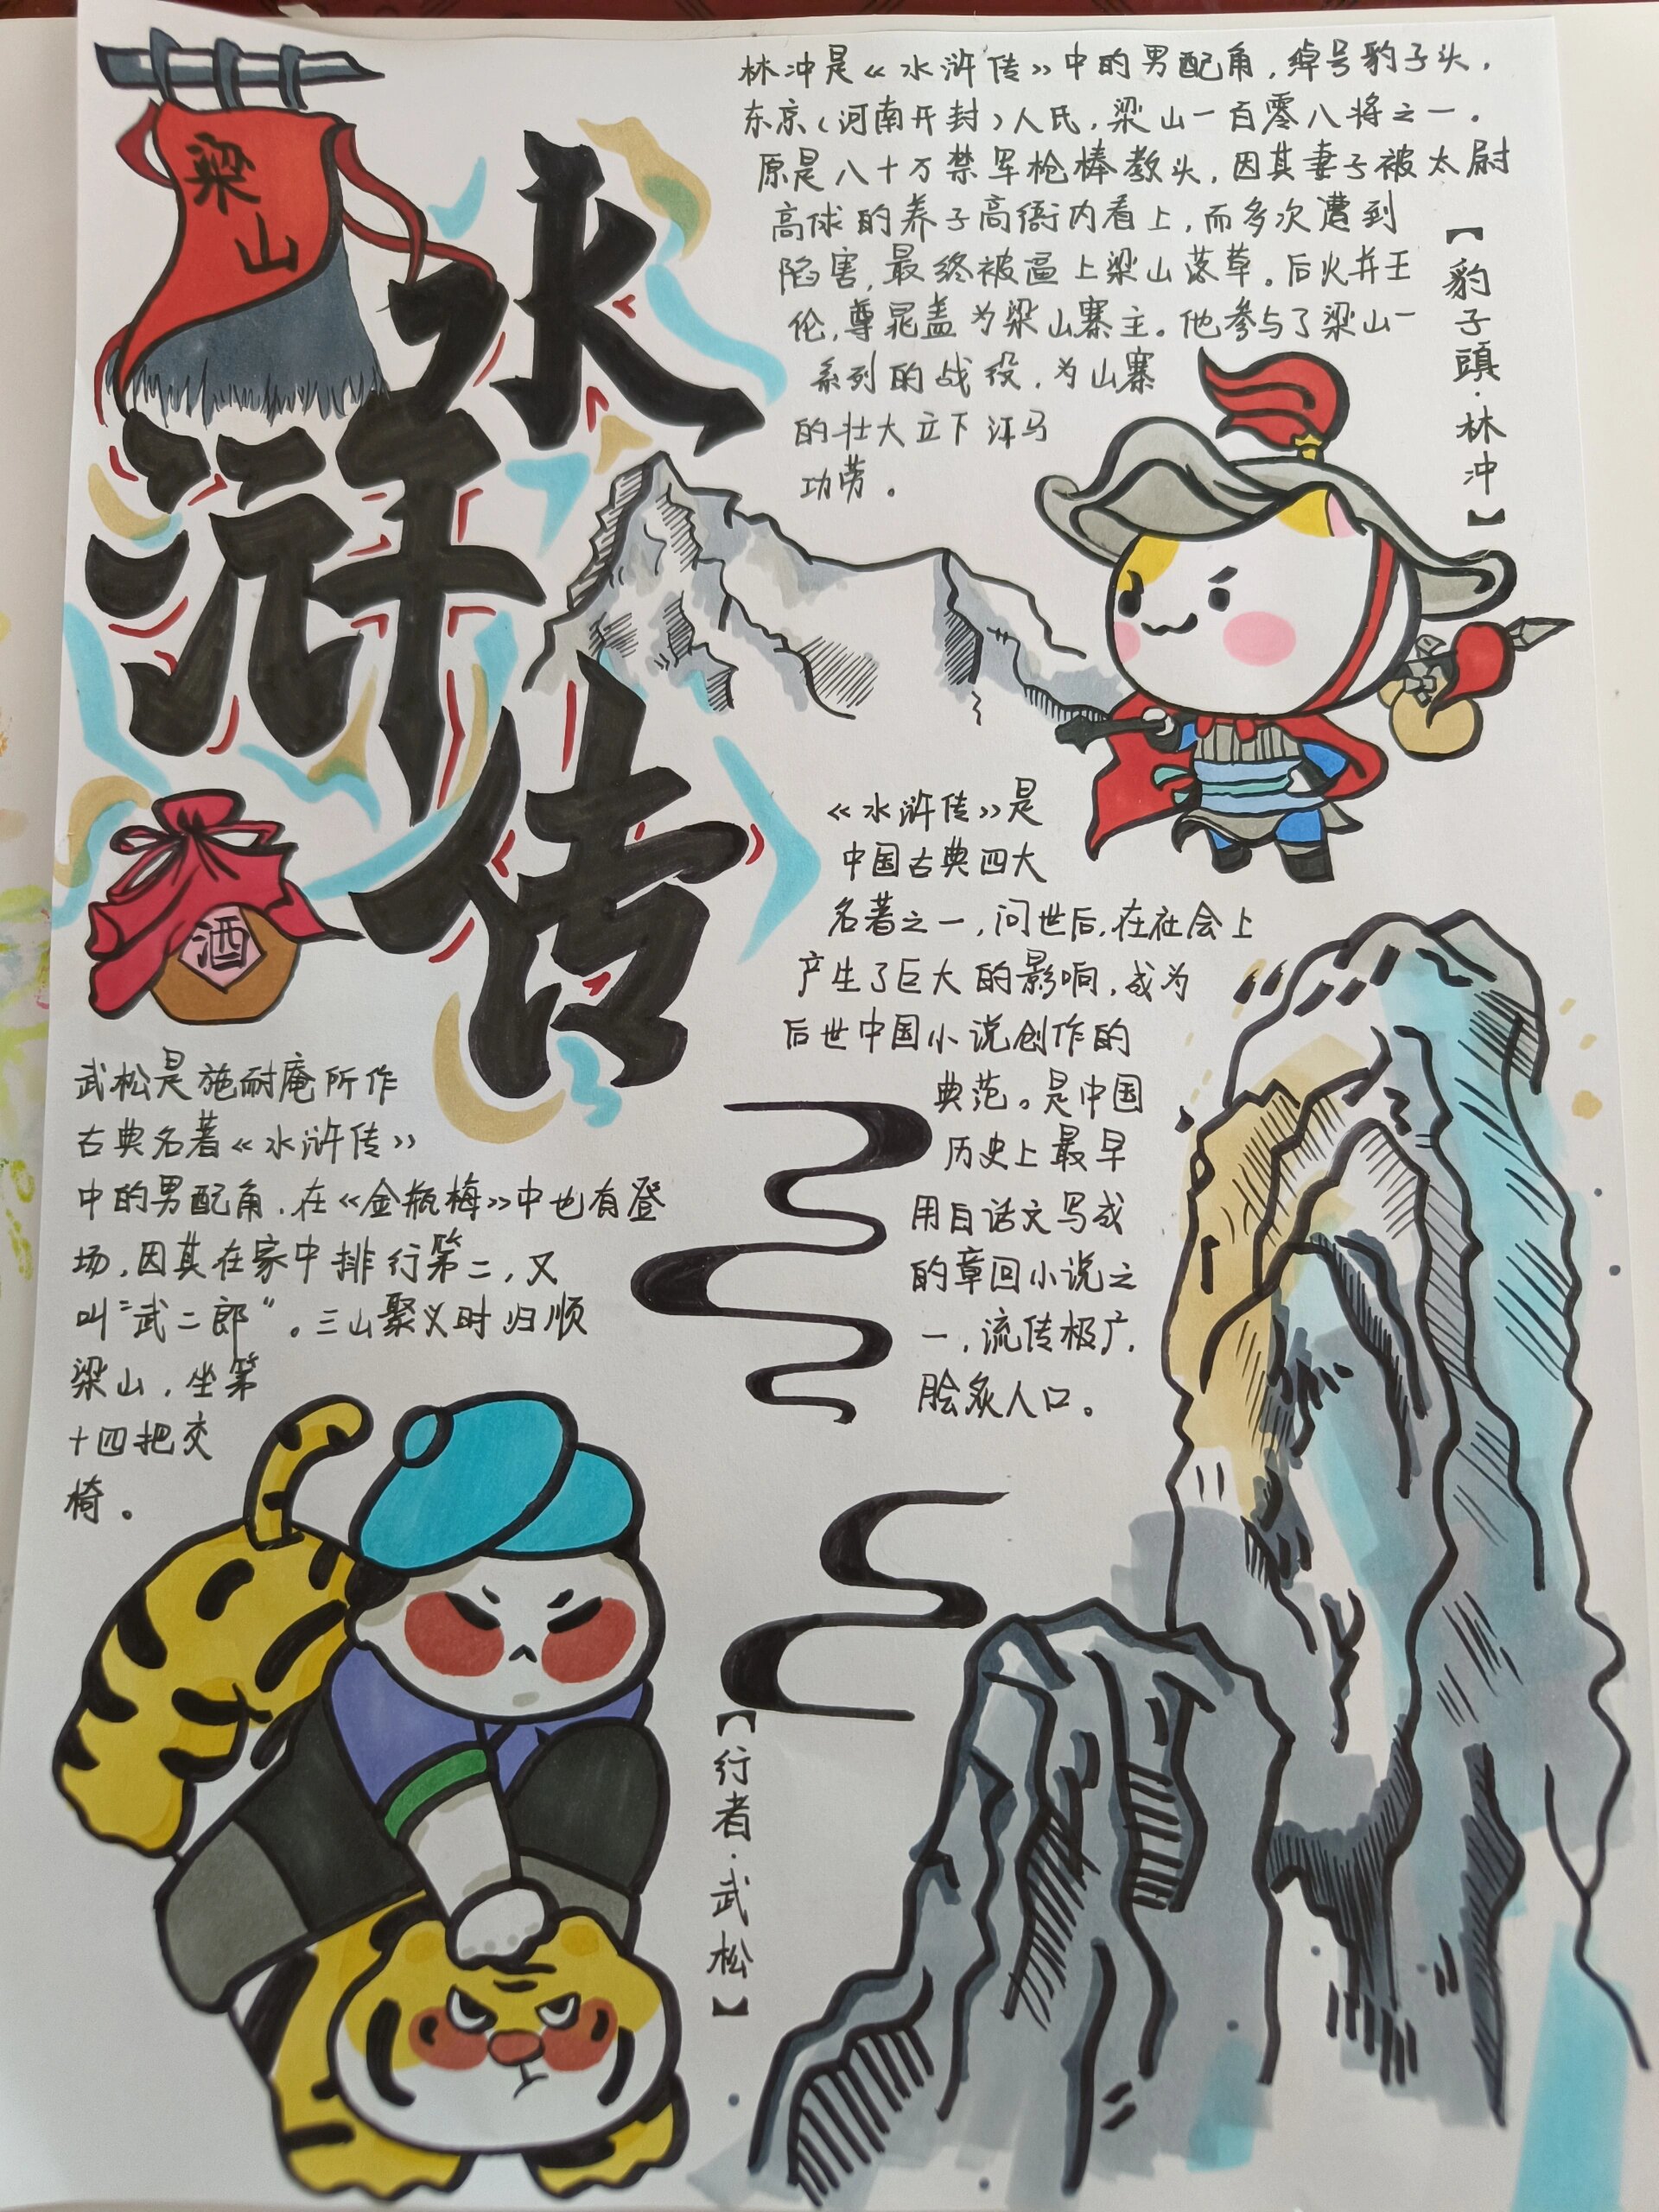 梁
山
水
浒
传
酒
林冲是《水浒传》中的男配角,绰号豹子头,
东京(河南开封)人氏,梁山一百零八将之一。
原是八十万禁军枪棒教头,因其妻子被太尉
高俅的养子高衙内看上,而多次遭到
陷害,最终被逼上梁山落草。后火并王
伦,尊晁盖为梁山寨主。他参与了梁山一
系列的战役,为山寨
的壮大立下汗马
功劳。
【豹子頭·林冲】
《水浒传》是
中国古典四大
名著之一,问世后,在社会上
产生了巨大的影响,成为
后世中国小说创作的
典范。是中国
历史上最早
用白话文写成
的章回小说之
一,流传极广,
脍炙人口。
武松是施耐庵所作
古典名著《水浒传》
中的男配角,在《金瓶梅》中也有登
场,因其在家中排行第二,又
叫“武二郎”。三山聚义时归顺
梁山,坐第
十四把交
椅。
【行者·武松】